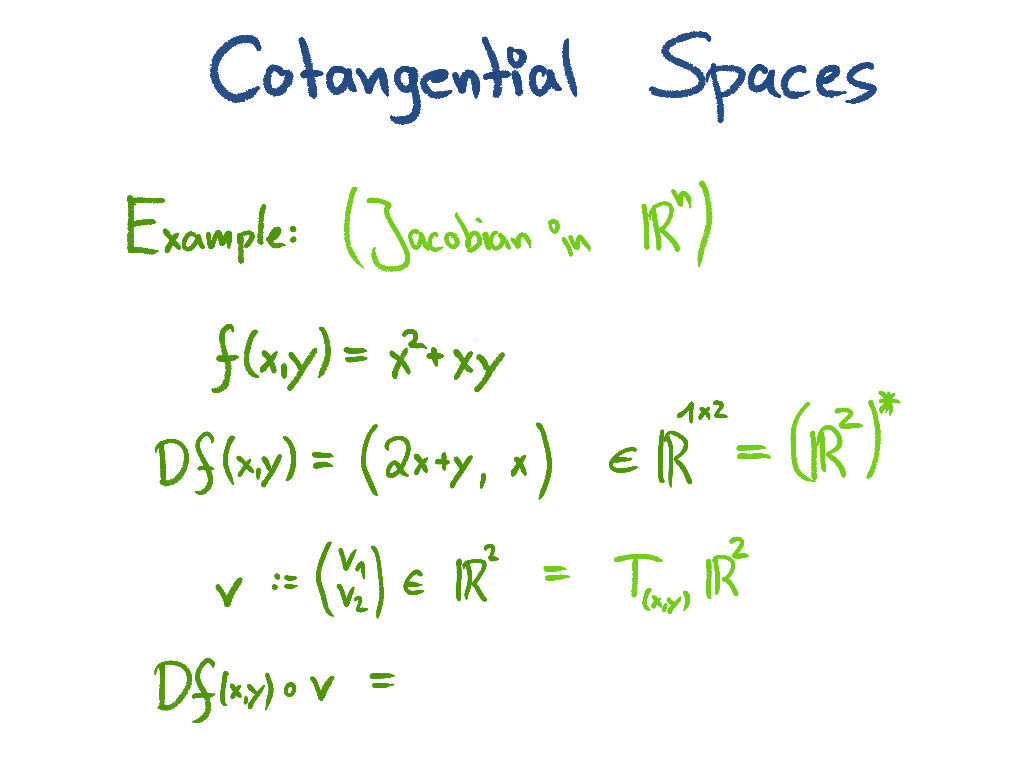 Cotangential Spaces
Example: (Jacobian in ℝⁿ)
f(x,y) = x² + xy
Df(x,y) = (2x+y, x) ∈ ℝ¹ˣ² = (ℝ²)*
v := (v₁ v₂) ∈ ℝ² = T₍ₓ,ᵧ₎ ℝ²
Df(x,y) ∘ v =